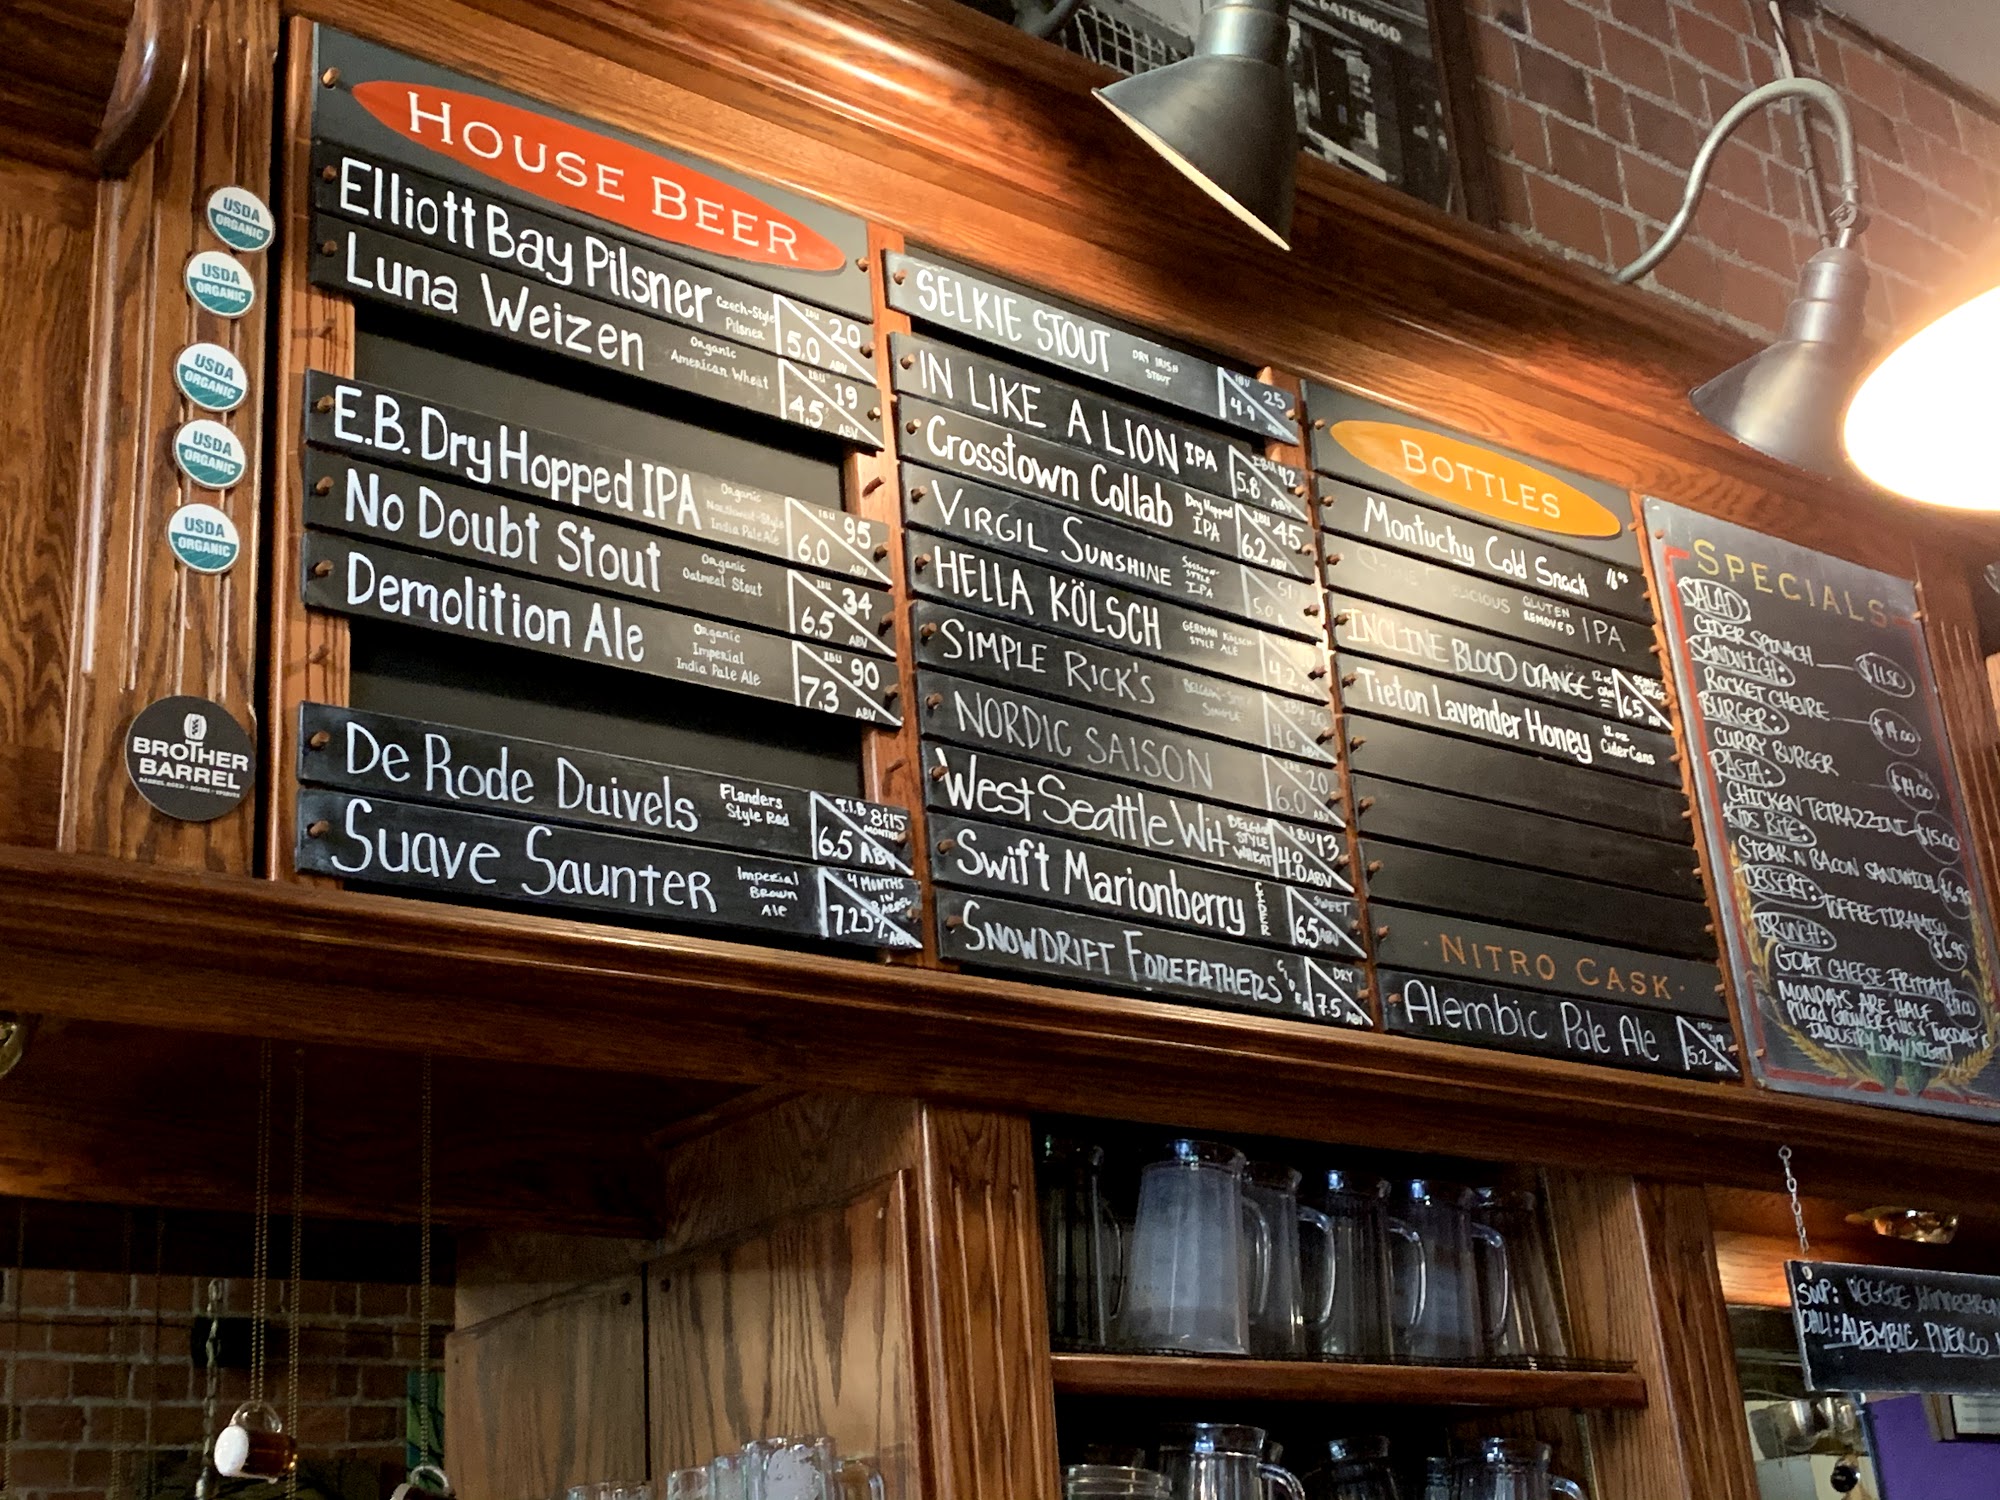 GATEWOOD
HOUSE BEER
Elliott Bay Pilsner Czech-Style Pilsner IBU 20 5.0 ABV
Luna Weizen Organic American Wheat IBU 19 4.5 ABV
E.B. Dry Hopped IPA Organic Northwest-Style India Pale Ale IBU 95 6.0 ABV
No Doubt Stout Organic Oatmeal Stout IBU 34 6.5 ABV
Demolition Ale Organic Imperial India Pale Ale IBU 90 7.3 ABV
De Rode Duivels Flanders Style Red T.I.B 8&15 MONTHS 6.5 ABV
Suave Saunter Imperial Brown Ale 4 MONTHS IN BARREL 7.25% ABV
USDA ORGANIC
USDA ORGANIC
USDA ORGANIC
USDA ORGANIC
USDA ORGANIC
BROTHER
BARREL
SELKIE STOUT DRY IRISH STOUT IBU 25 4.9
IN LIKE A LION IPA IBU 42 5.8 ABV
Crosstown Collab Dry Hopped IPA IBU 45 6.2 ABV
VIRGIL SUNSHINE SESSION-STYLE IPA 51 5.0
HELLA KÖLSCH GERMAN KÖLSCH-STYLE ALE 4.2
SIMPLE RICK'S BELGIAN-STYLE SINGLE IBU 20 4.6 ABV
NORDIC SAISON 20 6.0 ABV
West Seattle Wit BELGIAN STYLE WHEAT IBU 13 4.8 ABV
Swift Marionberry CIDER SWEET 6.5 ABV
SNOWDRIFT FOREFATHERS CIDER DRY 7.5 ABV
BOTTLES
Montucky Cold Snack 16oz
DELICIOUS GLUTEN REMOVED IPA
INCLINE BLOOD ORANGE 12 oz CAN SEMI-SWEET 6.5 ABV
Tieton Lavender Honey 12 oz Cider Cans
· NITRO CASK ·
Alembic Pale Ale IBU 49 5.2 ABV
SPECIALS
SALAD:
CIDER SPINACH $11.50
SANDWICH:
ROCKET CHEVRE $14.00
BURGER:
CURRY BURGER $14.00
PASTA:
CHICKEN TETRAZZINI $15.00
KIDS BITE:
STEAK N BACON SANDWICH $6.95
DESSERT:
TOFFEE TIRAMISU $6.95
BRUNCH:
GOAT CHEESE FRITTATA
MONDAYS ARE HALF
PRICED GROWLER FILLS & TUESDAY IS
INDUSTRY DAY/NIGHT!
SOUP: VEGGIE
CHILI: ALEMBIC